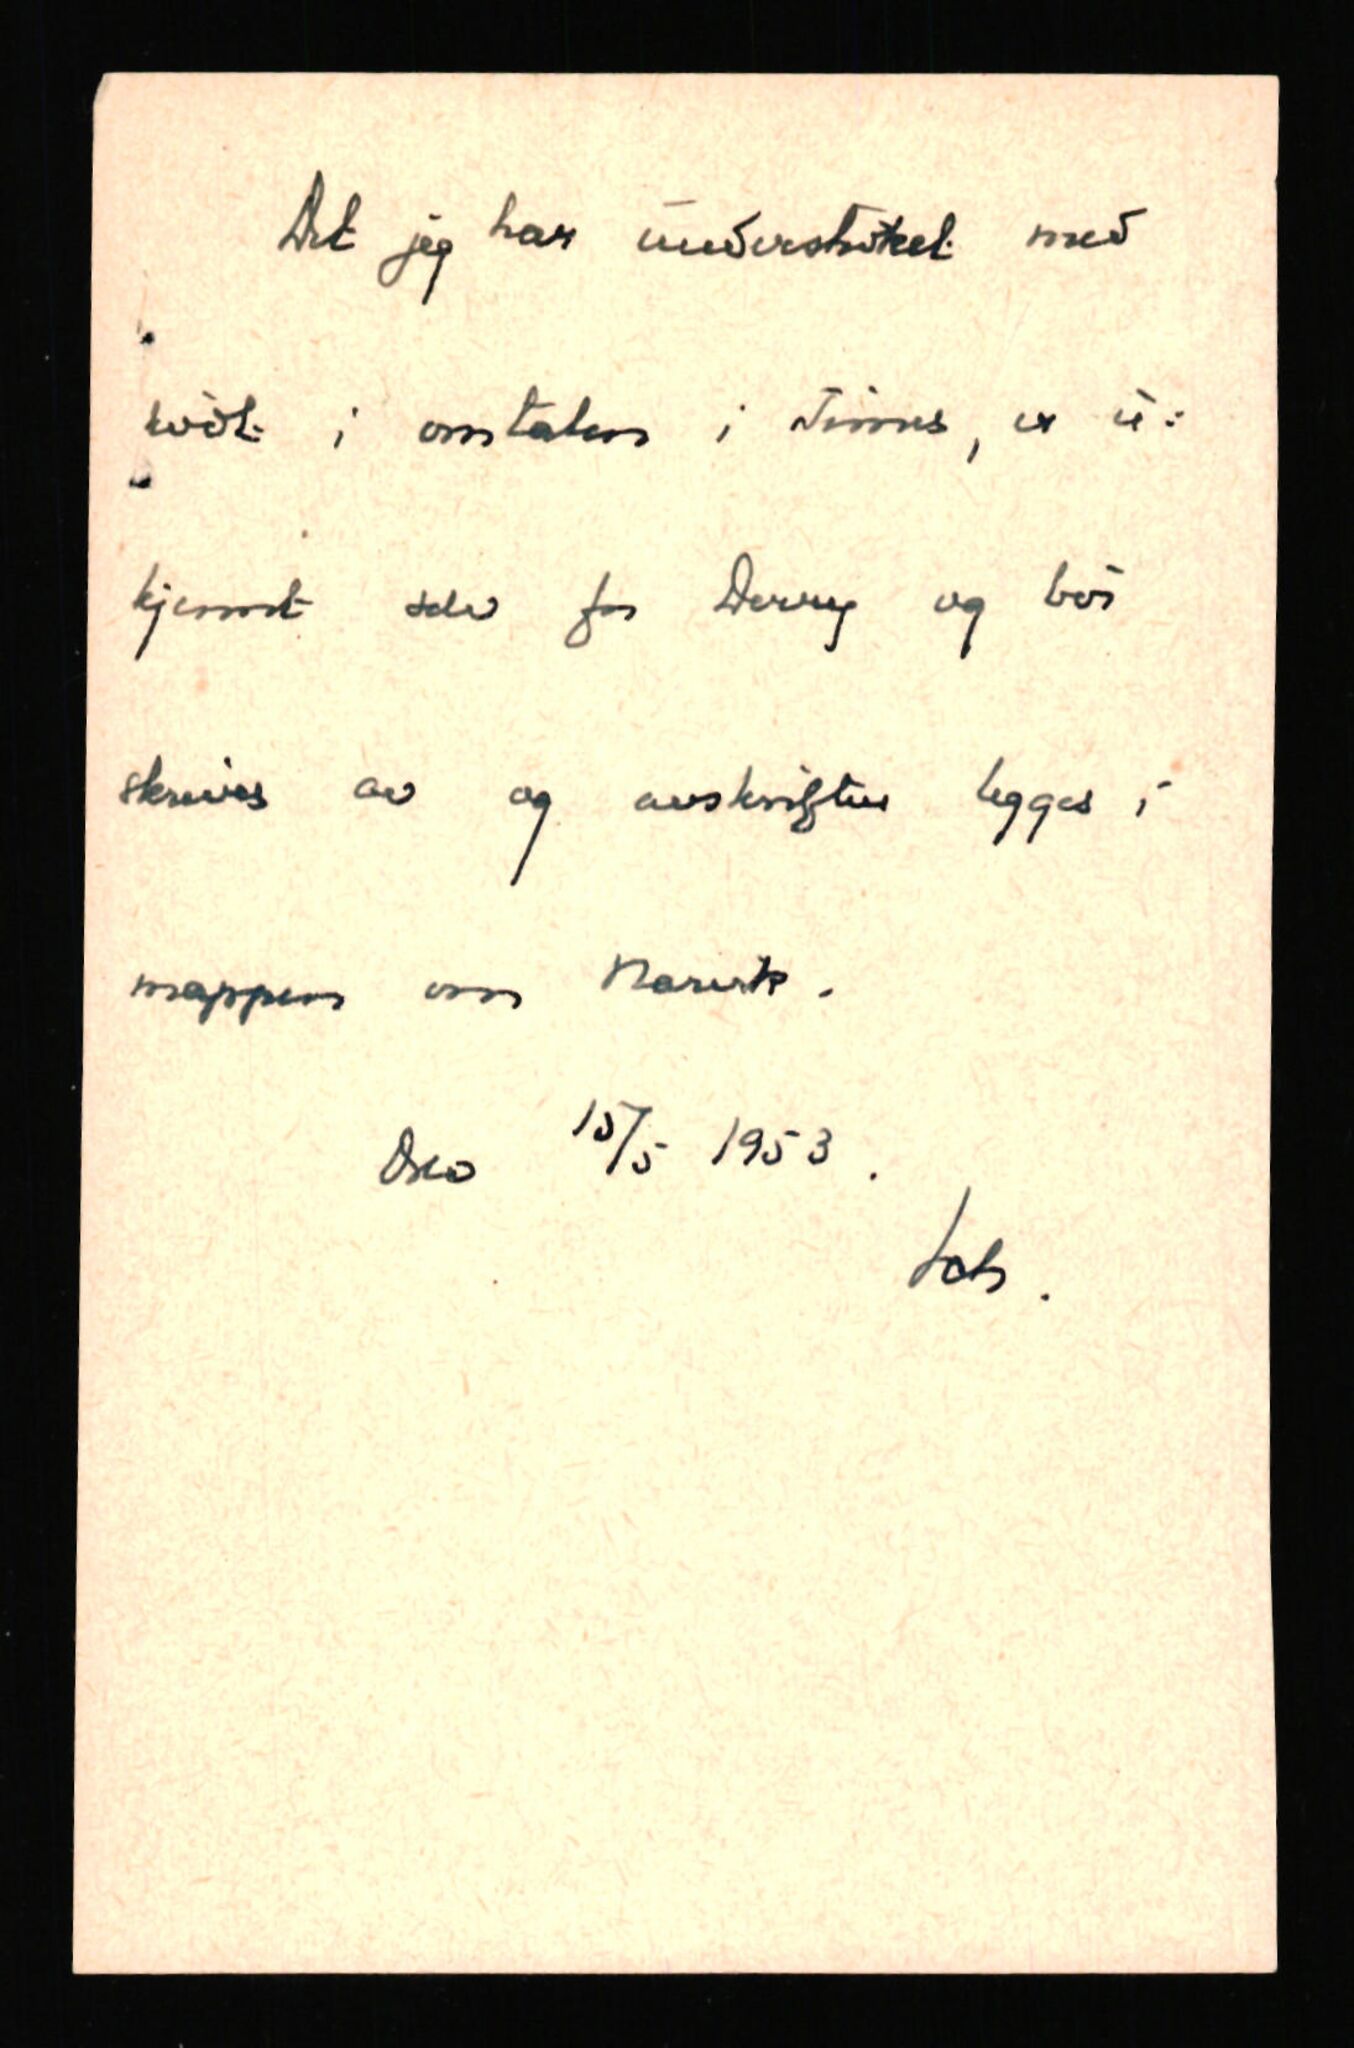 Det jeg har understreket med
hvitt i omtalen i Times, er u:
kjennt selv for Derry og bör
skrives av og avskriften legges i
mappen om Narvik.
Oslo 15/5 1953.